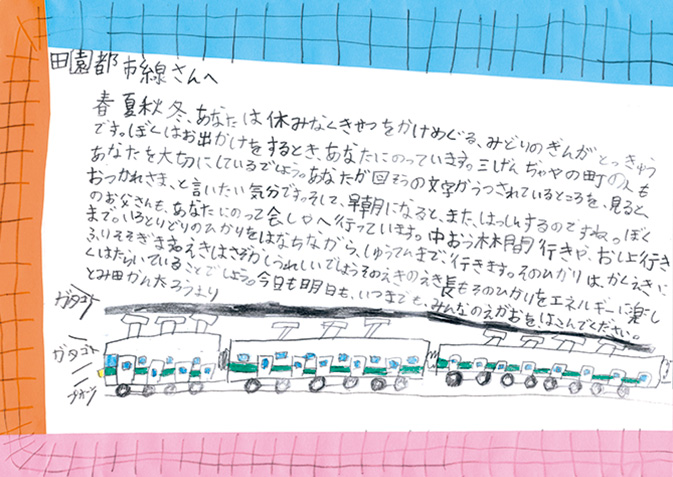 田園都市線さんへ
春夏秋冬、あなたは休みなくきせつをかけめぐる、みどりのぎんがとっきゅう
です。ぼくはお出かけをするとき、あなたにのっています。三げんぢゃやの町の人も
あなたを大切にしているでしょう。あなたが回そうの文字がうつされているところを、見ると、
おつかれさま、と言いたい気分です。そして、早朝になると、また、はっしんするのですね。ぼく
のお父さんも、あなたにのって会しゃへ行っています。中おう林間行きや、おし上行き
まで。いろとりどりのひかりをはなちながら、しゅうてんまで、行きます。そのひかりは、かくえきに
ふりそそぎますえきはさぞかしうれしいでしょうそのえきのえき長もそのひかりをエネルギーに楽し
くはたらいていることでしょう。今日も明日も、いつまでも、みんなのえがおをはこんでください。
とみ田かんたろうより
ガタゴト
ガタゴト